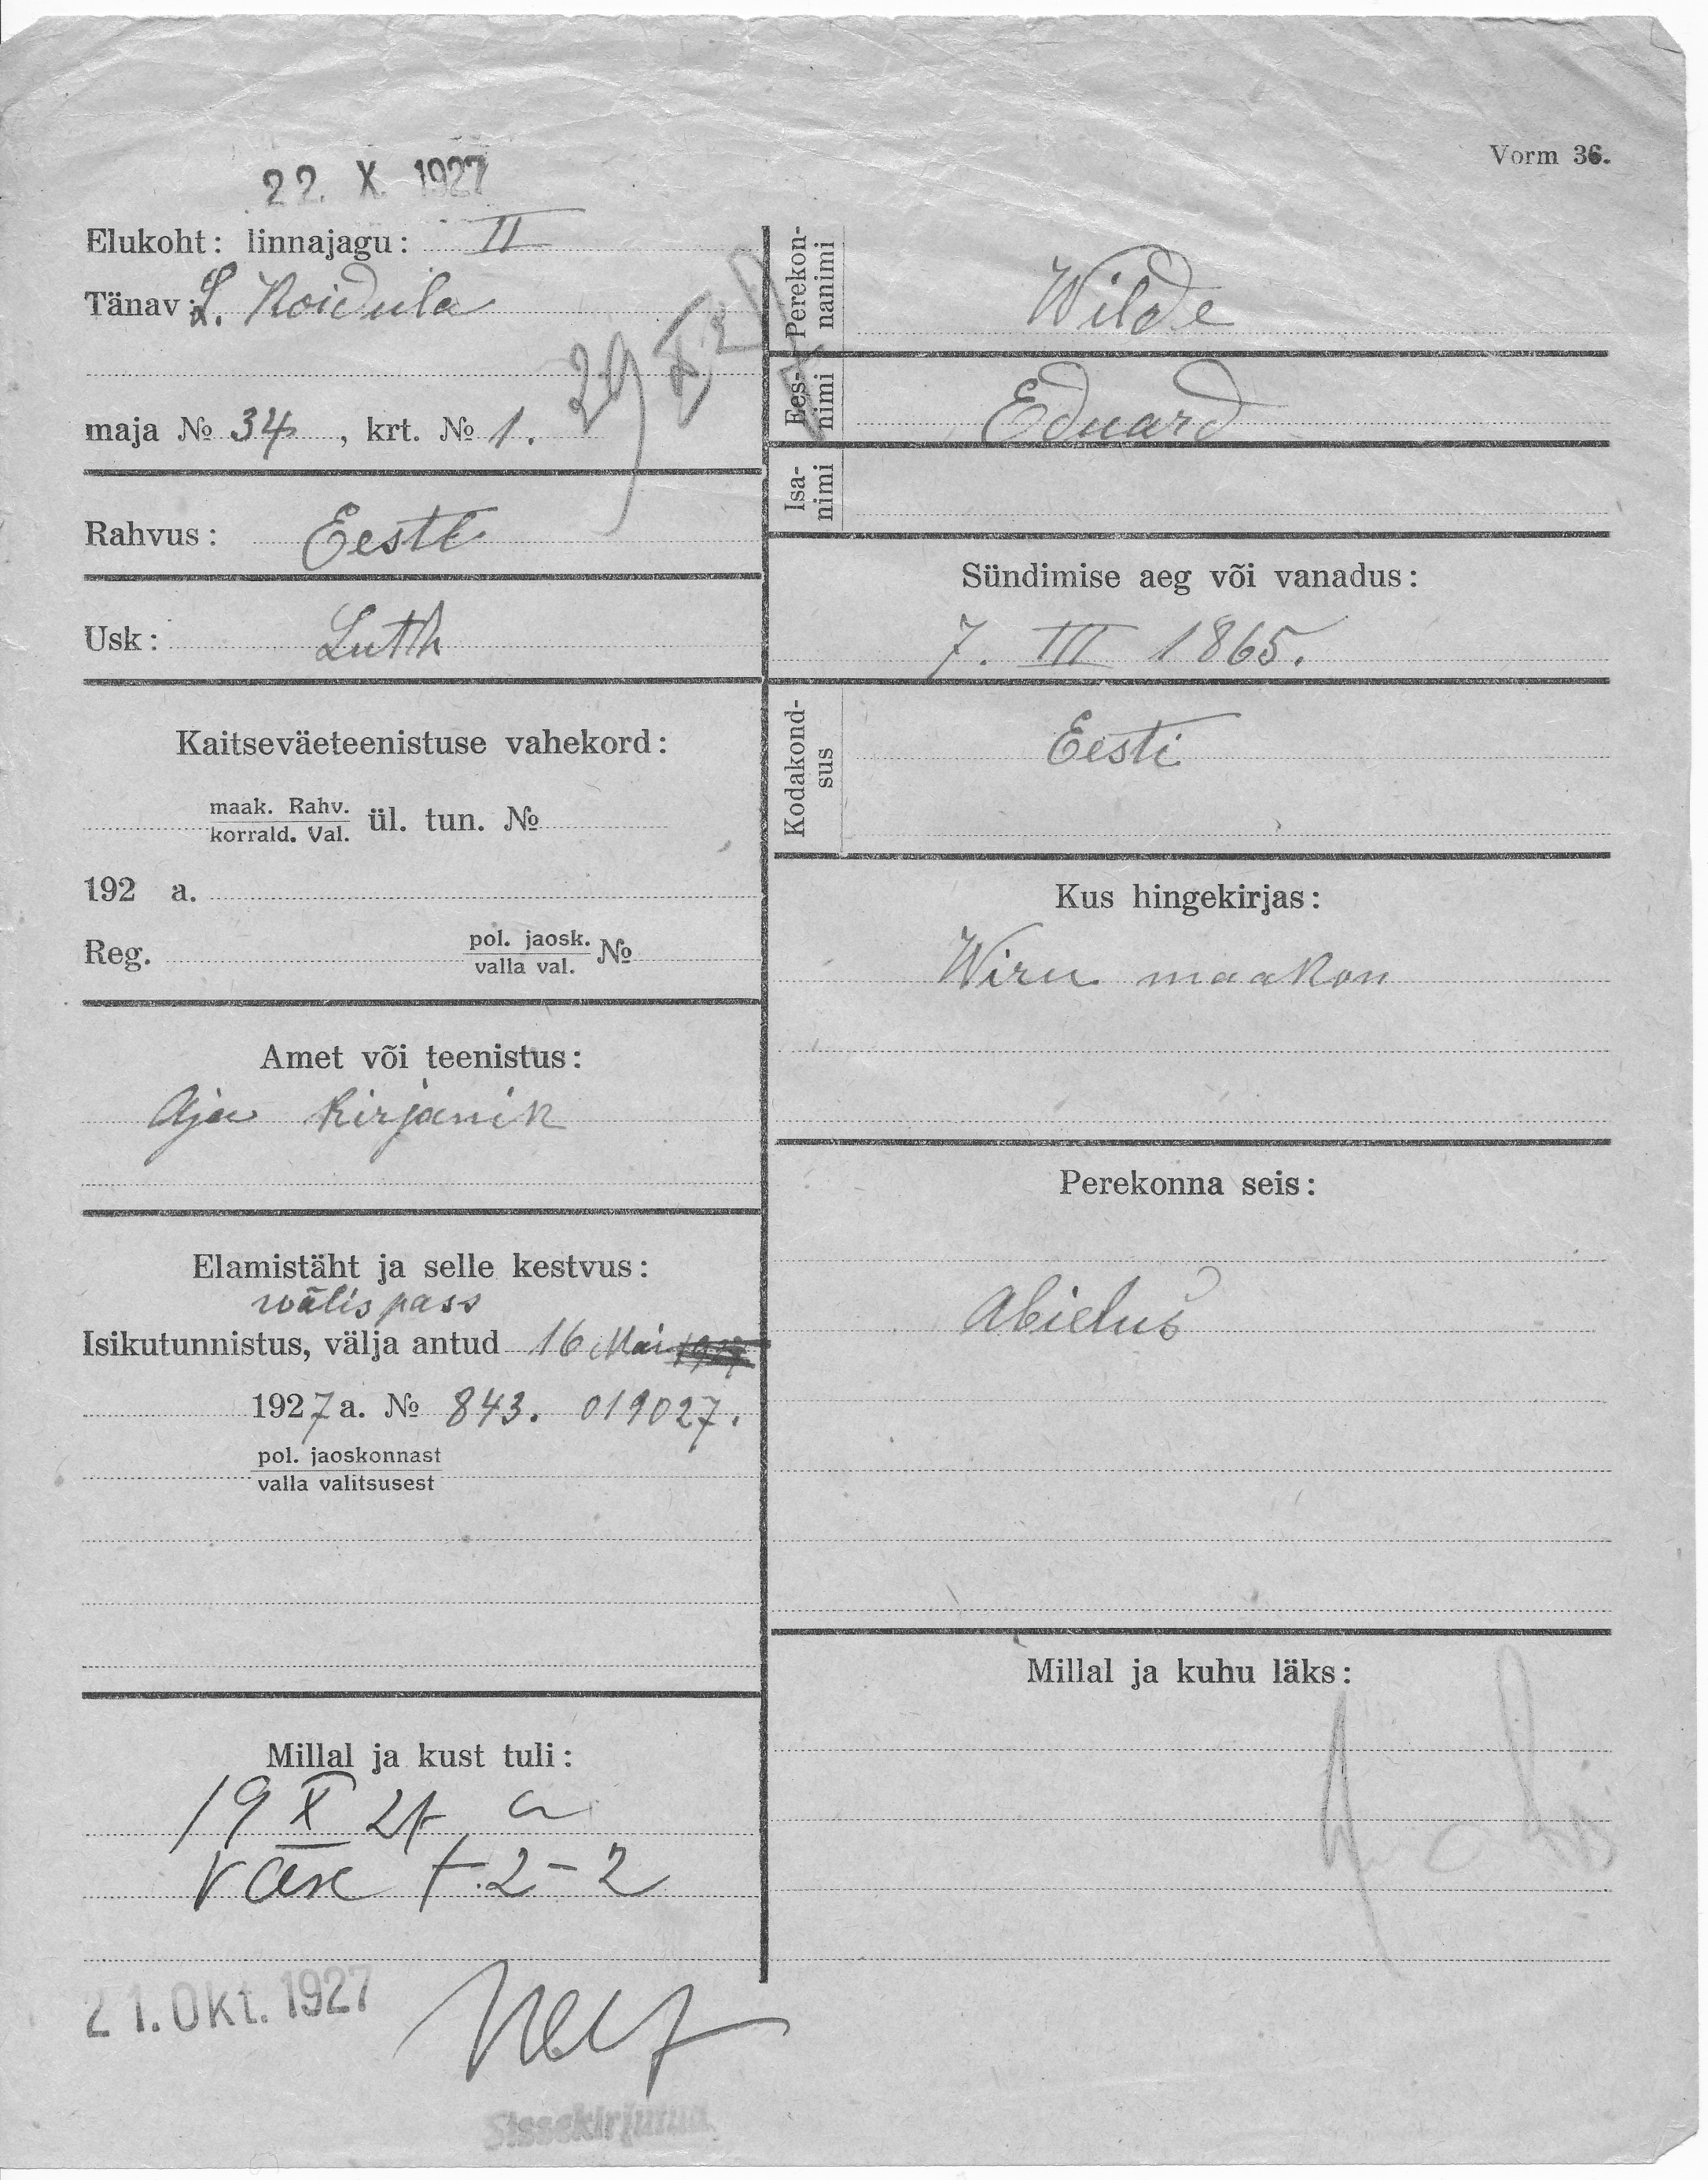 Vorm 36.
22. X. 1927
Elukoht: linnajagu: II
Tänav: L. Koidula
maja № 34, krt. № 1.
29 X 27
Rahvus: Eesti
Usk: Luth
Kaitseväeteenistuse vahekord:
maak. Rahv.
korrald. Val. ül. tun. №
192 a.
Reg. pol. jaosk.
valla val. №
Amet või teenistus:
Aja kirjanik
Elamistäht ja selle kestvus:
wälis pass
Isikutunnistus, välja antud 16 Mai 1927
1927 a. № 843. 019027.
pol. jaoskonnast
valla valitsusest
Millal ja kust tuli:
19 X 27 a
t. 2-2
21. Okt. 1927
Sissekirjutud
Perekon-
nanimi
Wilde
Ees-
nimi
Eduard
Isa-
nimi
Sündimise aeg või vanadus:
7. III 1865.
Kodakond-
sus
Eesti
Kus hingekirjas:
Wiru maakon
Perekonna seis:
Abielus
Millal ja kuhu läks: